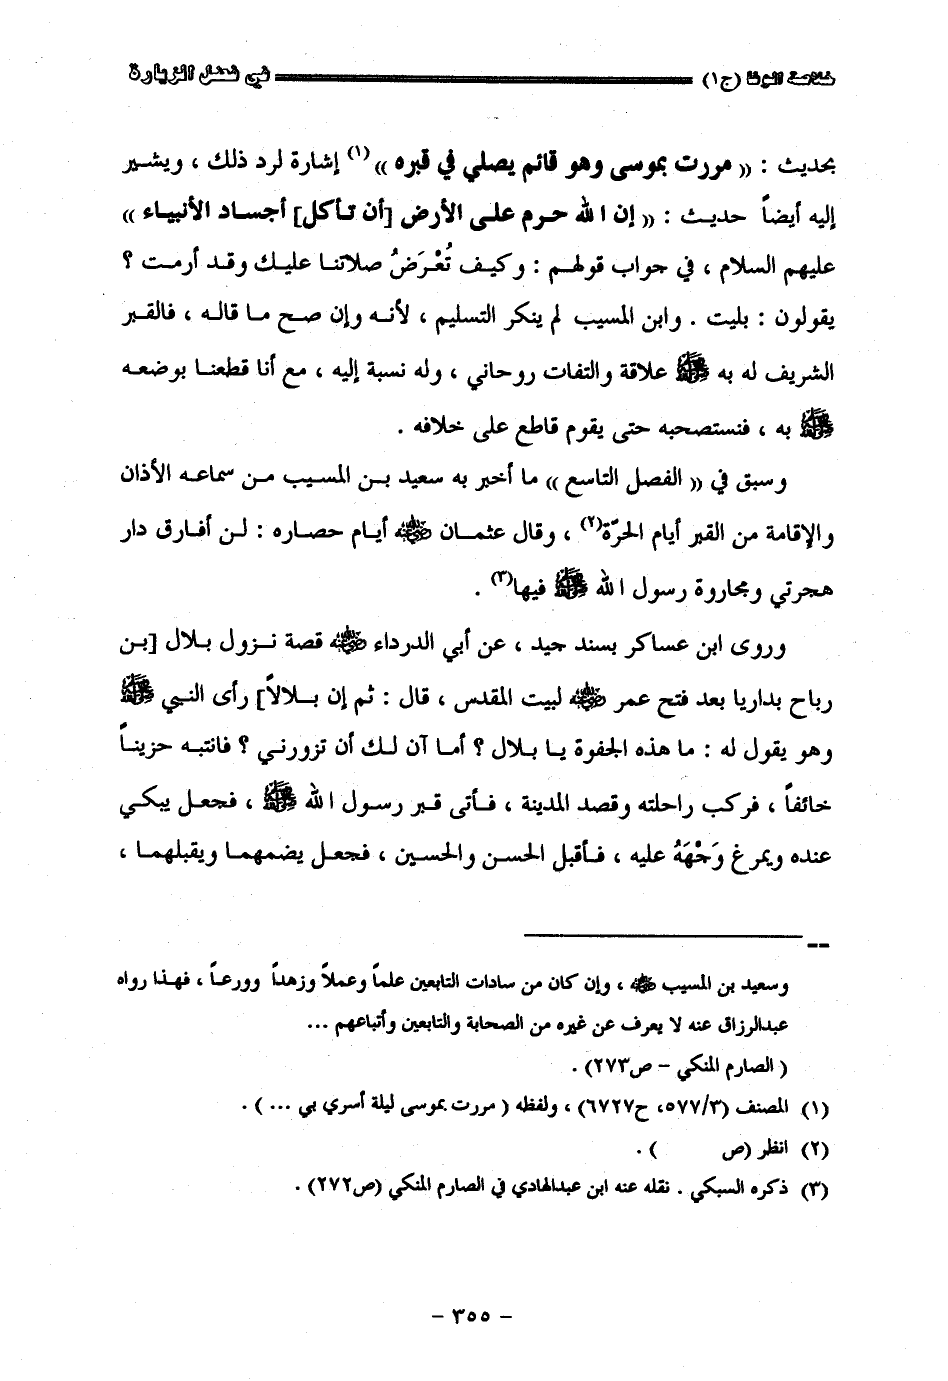 خلاصة الوفا (ج١) في فضل الزيارة
بحديث : « مررت بموسى وهو قائم يصلي في قبره »(١) إشارة لرد ذلك ، ويشير
إليه أيضاً حديث : « إن الله حرم على الأرض [أن تأكل] أجساد الأنبياء »
عليهم السلام ، في جواب قولهم : وكيف تُعْرَضُ صلاتنا عليك وقد أرمت ؟
يقولون : بليت . وابن المسيب لم ينكر التسليم ، لأنه وإن صح ما قاله ، فالقبر
الشريف له به ﷺ علاقة والتفات روحاني ، وله نسبة إليه ، مع أنا قطعنا بوضعه
ﷺ به ، فنستصحبه حتى يقوم قاطع على خلافه .
وسبق في « الفصل التاسع » ما أخبر به سعيد بن المسيب من سماعه الأذان
والإقامة من القبر أيام الحرّة(٢) ، وقال عثمان رضي الله عنه أيام حصاره : لن أفارق دار
هجرتي ومجاروة رسول الله ﷺ فيها(٣) .
وروى ابن عساكر بسند جيد ، عن أبي الدرداء رضي الله عنه قصة نزول بلال [بن
رباح بداريا بعد فتح عمر رضي الله عنه لبيت المقدس ، قال : ثم إن بلالاً] رأى النبي ﷺ
وهو يقول له : ما هذه الجفوة يا بلال ؟ أما آن لك أن تزورني ؟ فانتبه حزيناً
خائفاً ، فركب راحلته وقصد المدينة ، فأتى قبر رسول الله ﷺ ، فجعل يبكي
عنده ويمرغ وَجْهَهُ عليه ، فأقبل الحسن والحسين ، فجعل يضمهما ويقبلهما ،
--
وسعيد بن المسيب رضي الله عنه ، وإن كان من سادات التابعين علماً وعملاً وزهداً وورعاً ، فهذا رواه
عبدالرزاق عنه لا يعرف عن غيره من الصحابة والتابعين وأتباعهم ...
( الصارم المنكي - ص٢٧٣) .
(١) المصنف (٥٧٧/٣، ح٦٧٢٧) ، ولفظه ( مررت بموسى ليلة أسري بي ... ) .
(٢) انظر (ص ) .
(٣) ذكره السبكي . نقله عنه ابن عبدالهادي في الصارم المنكي (ص٢٧٢) .
- ٣٥٥ -